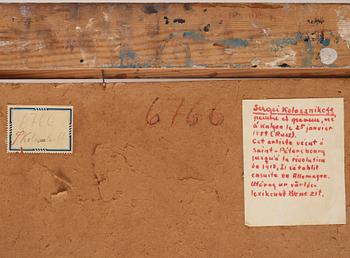 6766
6766
Sergei Kolesnikoff
peintre et graveur, né
à Kalgen le 25 janvier
1889 (Russ).
Cet artiste vécut à
Saint-Pétersbourg
jusqu'à la révolution
de 1918, Il s'établit
ensuite en Allemagne.
Utdrag ur världs-
lexikonet Benezit.